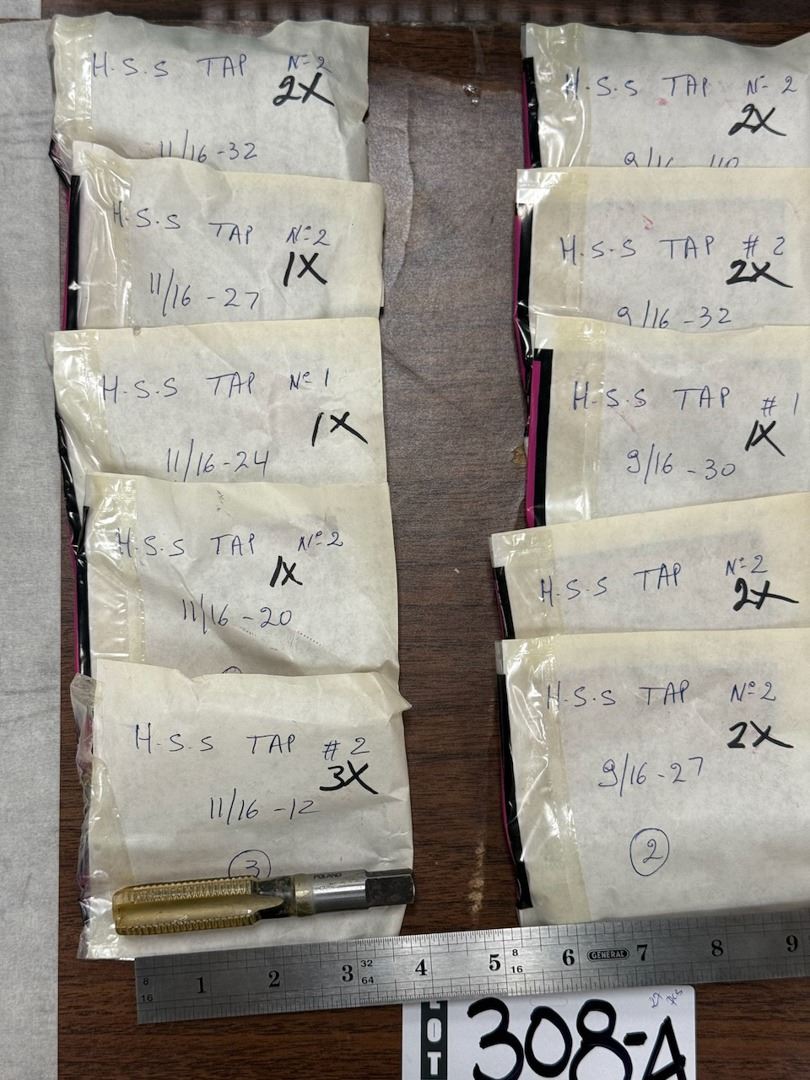 H.S.S TAP Nº 2
2X
11/16 -32
H.S.S TAP Nº 2
1X
11/16 - 27
H.S.S TAP Nº 1
1X
11/16 -24
H.S.S TAP Nº 2
1X
11/16 -20
H.S.S TAP # 2
3X
11/16 -12
3
POLAND
H.S.S TAP Nº 2
2X
H.S.S TAP # 2
2X
9/16 -32
H.S.S TAP # 1
1X
9/16 -30
H.S.S TAP Nº 2
2X
H.S.S TAP Nº 2
2X
9/16 -27
2
8 1 2 3 32 4 5 8 6 GENERAL 7 8 9
16 64 16
LOT 308-A